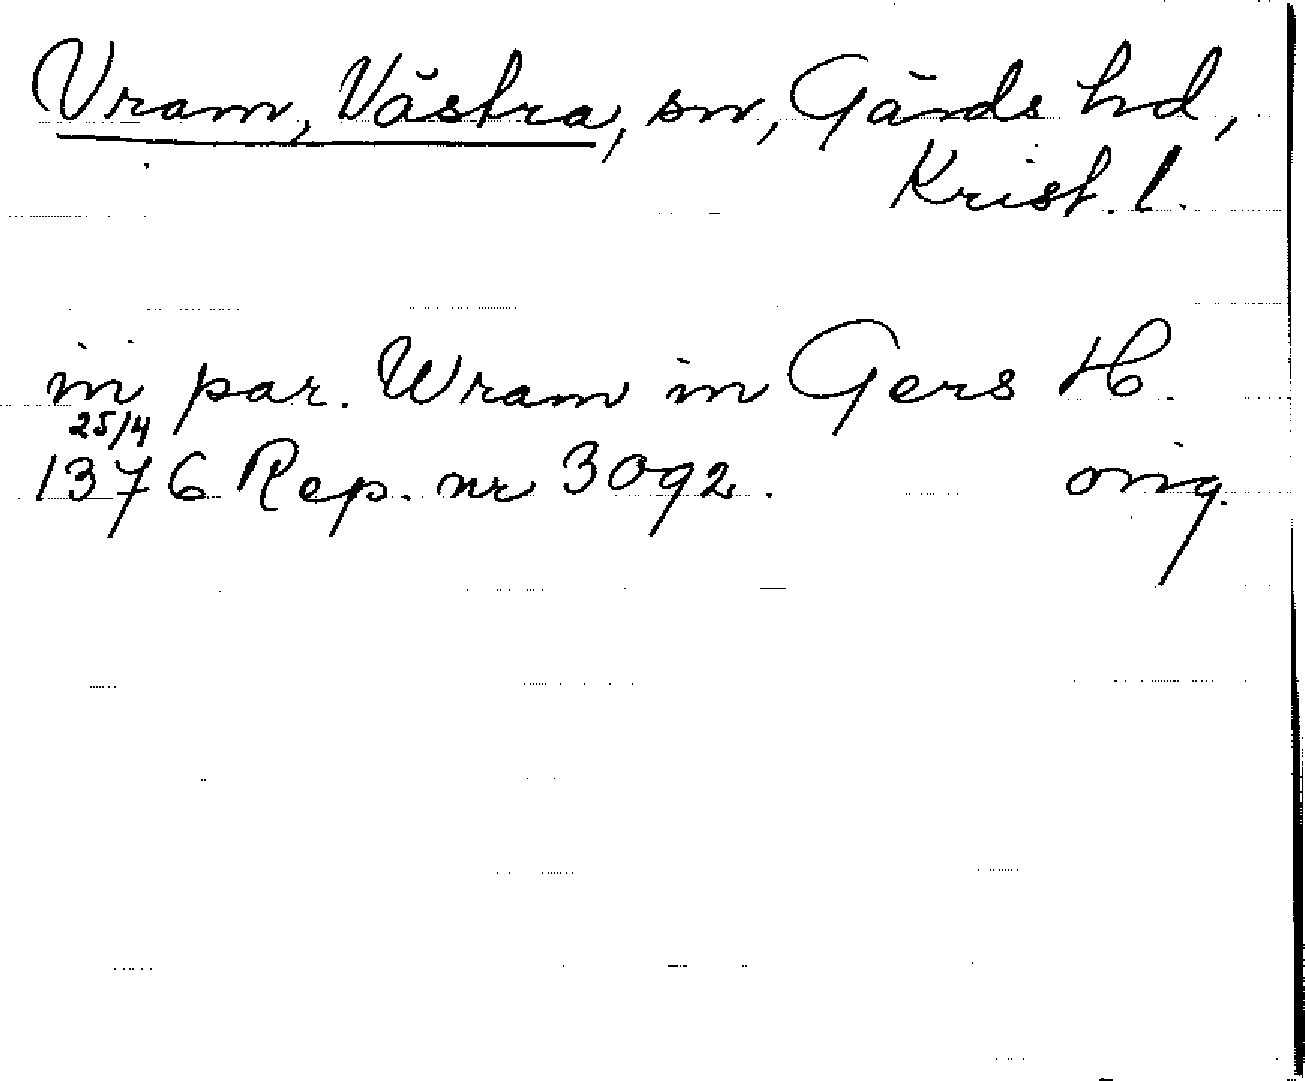 Vram, Västra, sn, Gärds hd,
Krist. l.
in par. Wram in Gers H.
25/4
1376 Rep. nr 3092. orig.